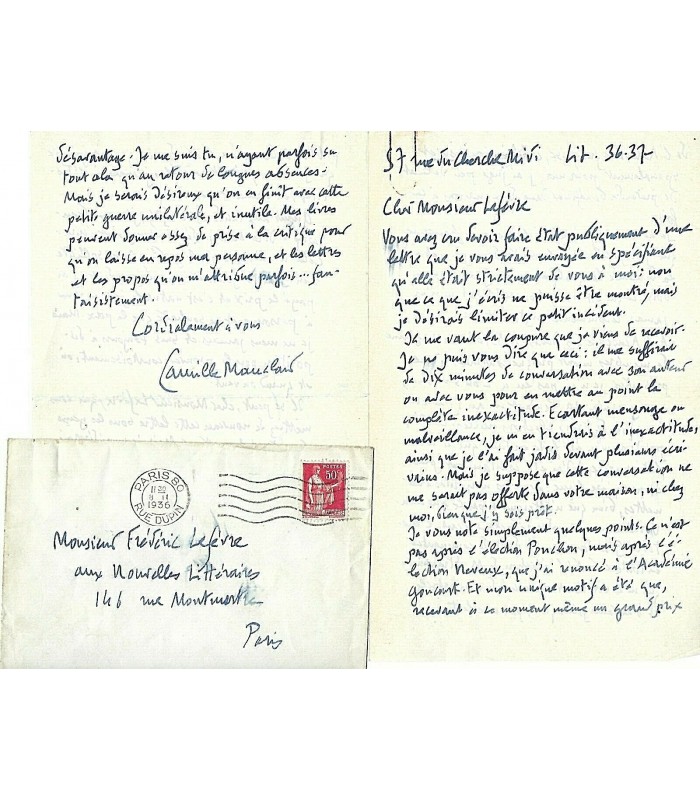 57 rue du Cherche Midi Lit. 36-37
Cher Monsieur Lefèvre
Vous avez cru devoir faire état publiquement d'une
lettre que je vous avais envoyée en spécifiant
qu'elle était strictement de vous à moi: non
que ce que j'écris ne puisse être montré, mais
je désirais limiter ce petit incident.
Je me vaut la coupure que je viens de recevoir.
Je ne puis vous dire que ceci: il me suffirait
de dix minutes de conversation avec son auteur
ou avec vous pour en mettre au point la
complète inexactitude. Ecartant mensonge ou
malveillance, je m'en tiendrais à l'inexactitude,
ainsi que je l'ai fait jadis devant plusieurs écri-
vains. Mais je suppose que cette conversation ne
me serait pas offerte dans votre maison, ni chez
moi, bien que j'y sois prêt.
Je vous note simplement quelques points. Ce n'est
pas après l'élection Ponchon, mais après l'é-
lection Neveux, que j'ai renoncé à l'Académie
Goncourt. Et mon unique motif a été que,
recevant à ce moment même un grand prix
désavantage. Je me suis tu, n'ayant parfois su
tout cela qu'au retour de longues absences.
Mais je serais désireux qu'on en finît avec cette
petite guerre unilatérale, et inutile. Mes livres
peuvent donner assez de prise à la critique pour
qu'on laisse en repos ma personne, et les lettres
et les propos qu'on m'attribue parfois... fan-
taisistement.
Cordialement à vous
Camille Mauclair
PARIS 80
11 20
8 II
1936
RUE DUPIN
POSTES
50c
Monsieur Frédéric Lefèvre
aux Nouvelles Littéraires
146 rue Montmartre
Paris